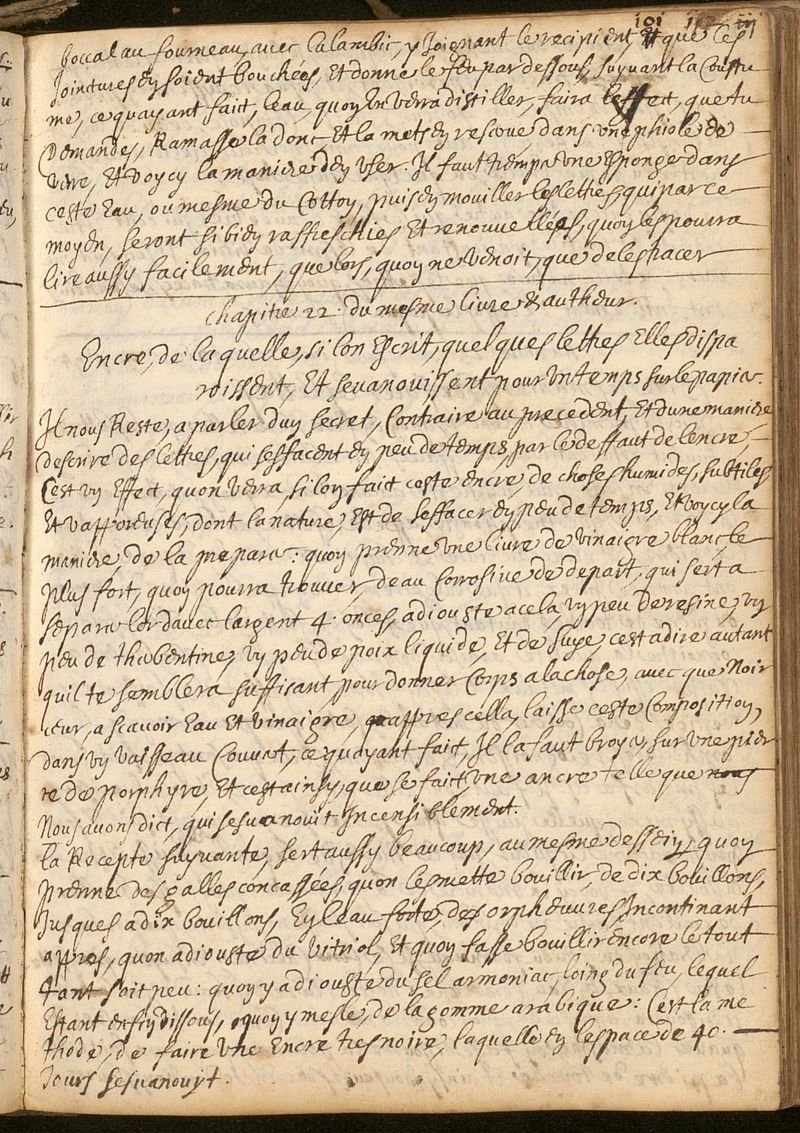 101
boccal au fourneau, avec l'alambic, y Joignant le recipient, Et que les
Jointures en soient bouchées, Et donne le feu par dessous, suyvant la Coustu
me, ce quayant faict, leau, quon en verra distiller, faira leffect, que tu
Demandes, Ramasse la donc, Et la mets en reserve, dans une phiole de
verre, Et voycy la maniere den user. Il faut tremper une Esponge dans
ceste Eau, ou mesme du Cotton, puis en mouiller les lettres, qui par ce
moyen, seront si bien raffreschies Et renouvellées, quon les pourra
lire aussy facilement, que lors, quon ne venoit, que de les tracer
Chapitre 22. du mesme livre & autheur.
Encre, de laquelle, si lon Escrit, quelques lettres Elles dispa
roissent, Et sevanouissent pour un temps sur le papier.
Il nous Reste, a parler dun secret, Contraire au precedent, Et dune maniere
descrire des lettres, qui seffacent en peu de temps, par le deffaut de lencre,
Cest un Effect, quon verra, si lon fait ceste encre, de choses humides, subtiles
Et vapporeuses, dont la nature, Est de seffacer en peu de temps, Et voycy la
maniere, de la preparer: quon prenne une livre de vinaigre blanc, le
plus fort, quon pourra trouver, deau Corrosive de depart, qui sert a
separer lor davec largent 4. onces, adiouste a cela, un peu de resine, un
peu de therbentine, un peu de poix liquide, Et de suye, cest a dire autant
quil te semblera suffisant, pour donner Corps a la chose, avec que Noir
ceur, a scavoir Eau Et vinaigre, appres cella, laisse ceste Composition,
dans un vaisseau Couvert, ce quayant faict, Il la faut broyer, sur une pier
re de porphyre, Et cest ainsy, que se fait, une ancre telle que nous
Nous avons dict, qui sesvanouit Incensiblement.
la Recepte suyvante, sert aussy beaucoup, au mesme dessein, quon
prenne des galles concassées, quon les mette bouillir, de dix bouillons,
Jusques a dix bouillons, En leau forte, des orpheuvres Incontinant
appres, quon adiouste du vitriol, Et quon fasse bouillir encore le tout
tant soit peu: quon y adiouste du sel armoniac, loing du feu, lequel
Estant enfin dissous, quon y mesle, de la gomme arabique: Cest la me
thode, de faire une Encre tres noire, laquelle en lespace de 40.
Jours sesvanouyt.